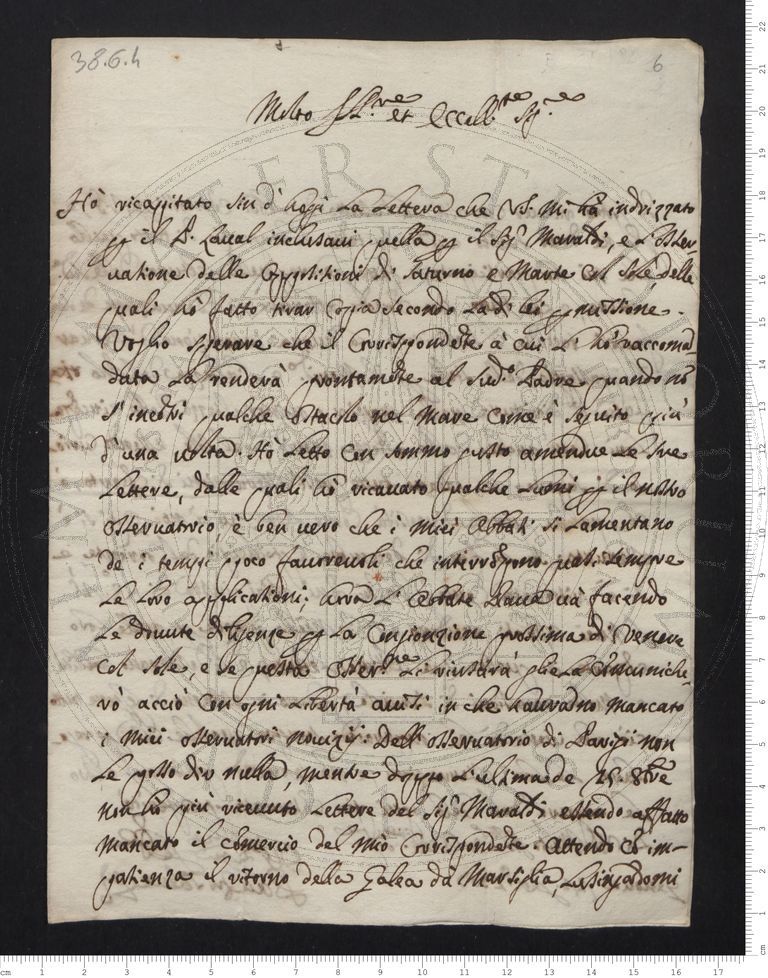 38.6.4
6
Molto Ill.re et Eccell.te Sig.re
Hò ricapitato sin d'hoggi la lettera che VS. mi hà indrizzato
p il P. Laval inclusavi quella p il Sig. Maraldi, e l'Osser-
vatione delle Oppositioni di Saturno e Marte col sole delle
quali hò fatto tirar Copia secondo la di lei pmissione.
Voglio sperare che il Corrispondẽte à cui l'hò raccoman-
data la renderà prontamẽte al sud.o Padre quando nõ
s'incõtri qualche ostacolo nel mare come è seguito più
d'una volta. Hò letto con sommo gusto amendue le sue
lettere, dalle quali hò ricavato qualche lumi p il nostro
osservatorio, è ben vero che i miei Abbati si lamentano
de i tempi poco favorevoli che interrõpono quasi sempre
le loro applicationi; hora l'Abbate và facendo
le dovute diligenze p la Congionzione prossima di Venere
col sole, e se questa Osser.ne li riuscirà glie la cõmuniche-
rò acciò con ogni libertà avisi in che havrãno mancato
i miei osservatori novizij. Dell'osservatorio di Parigi non
le posso dir nulla, mentre doppo l'ultima de 15. 8bre
non hò più ricevuto lettere del Sig. Maraldi essendo affatto
mancato il cõmercio del mio Corrispondẽte. Attendo cõ im-
patienza il ritorno della Galea da Marsiglia, lusingãdomi